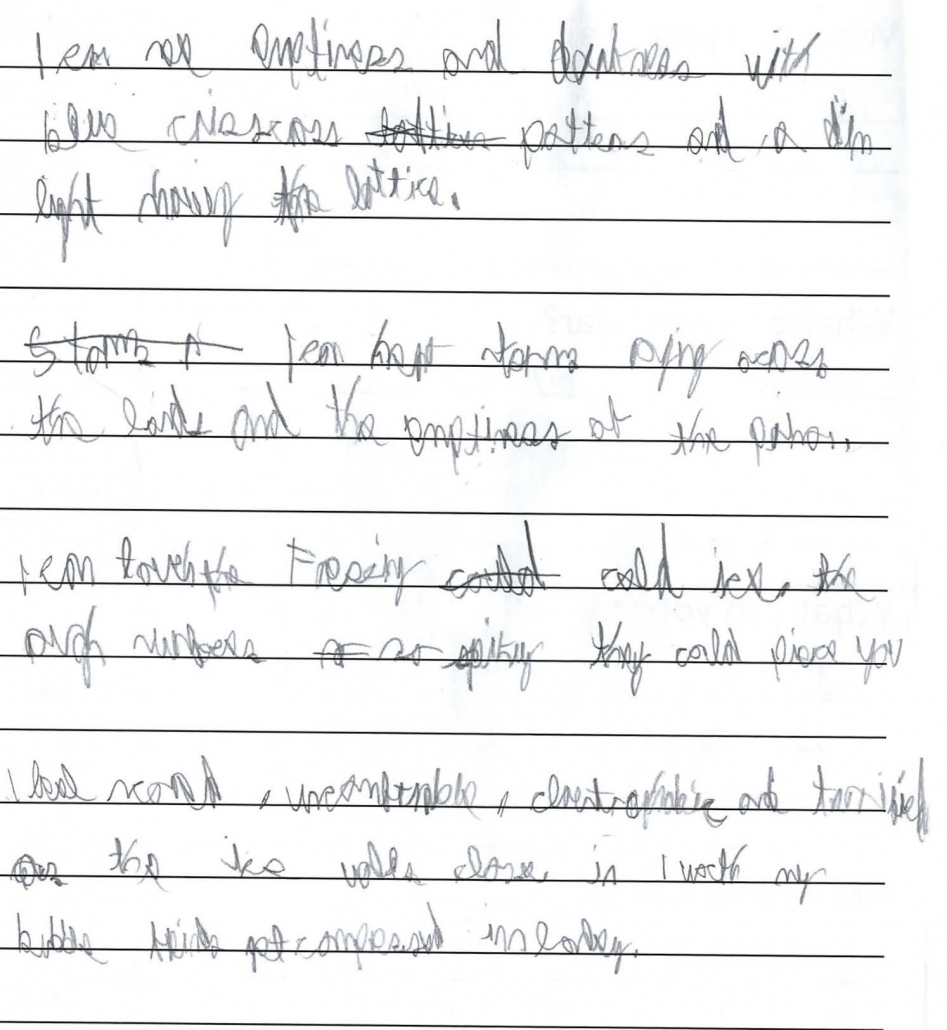 I can see emptiness and darkness with
blue crisscross patterns and a dim
light showing the lattice.
I can hear storms crying across
the lands and the emptiness at the
I can touch the Freezing cold ice. the
rough numbers spiky they could pierce you
I feel scared, uncomfortable, claustrophobic and terrified
as the ice walls close in I watch my
get compressed